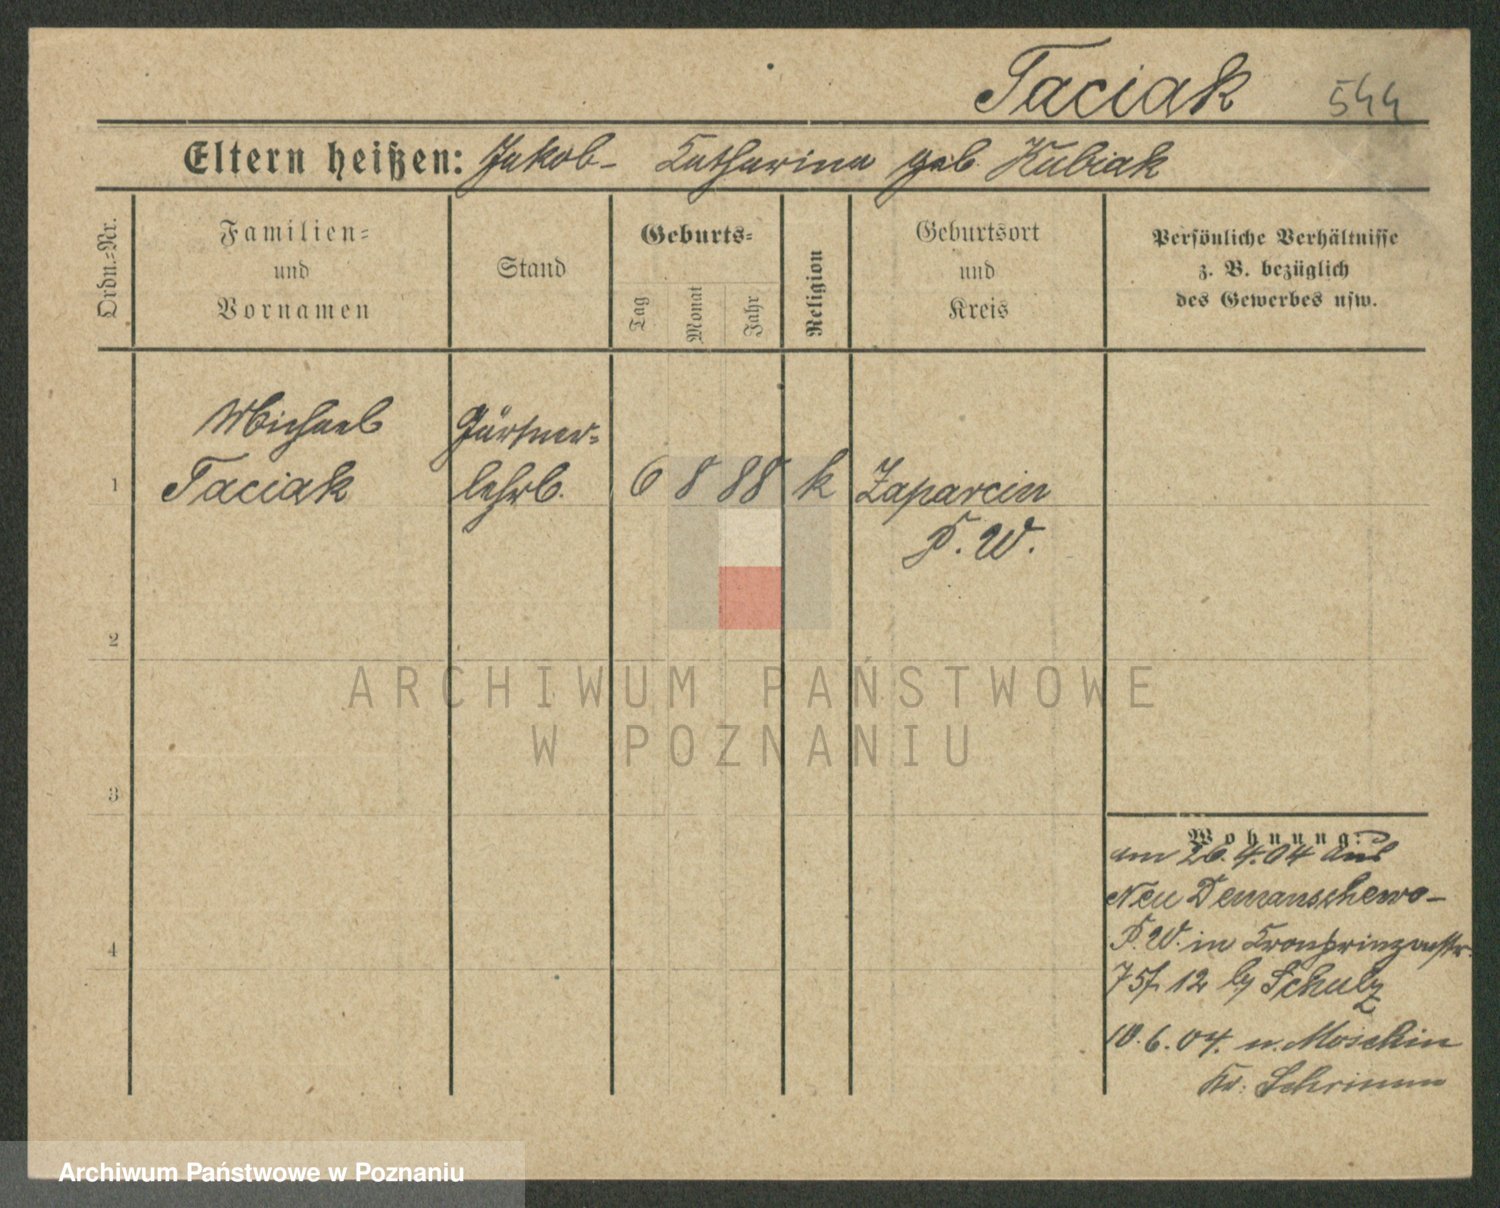 Taciak 544
Eltern heißen: Jakob - Katharina geb Kubiak
Ordn.-Nr.
Familien-
und
Vornamen
Stand
Geburts-
Tag
Monat
Jahr
Religion
Geburtsort
und
Kreis
Persönliche Verhältnisse
z. B. bezüglich
des Gewerbes usw.
1
Michael
Taciak
Gärtner-
lehrl.
6 8 88 k
Zaparcin
P. W.
2
3
4
Wohnung:
am 26.4.04 aus
Neu Demanschewo-
P.W. in Kronprinzenstr.
12 b/ Schulz
10.6.04. n. Moschin
Kr. Schrimm
ARCHIWUM PAŃSTWOWE
W POZNANIU
Archiwum Państwowe w Poznaniu